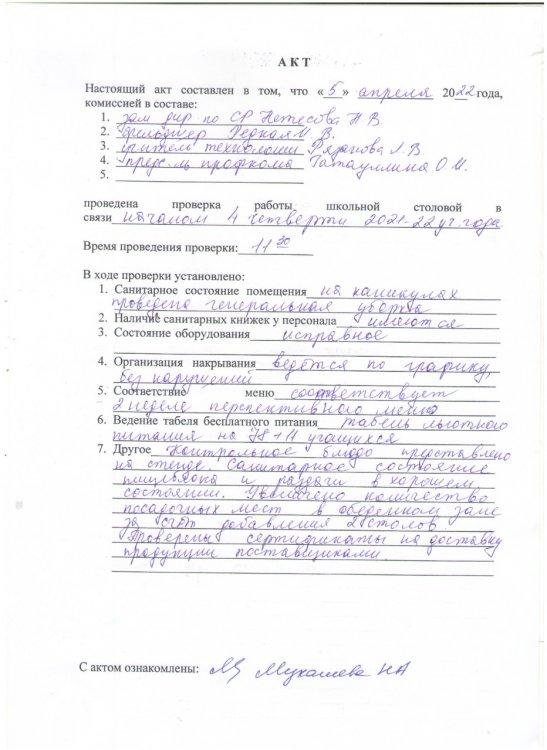 АКТ
Настоящий акт составлен в том, что «5» апреля 2022 года,
комиссией в составе:
1. зам дир по СР Нетесова Н В.
2. фельдшер Редкая И. В.
3. учитель технологии Рязанова Л. В.
4. предс-ль профкома Гатауллина О. И.
5.
проведена проверка работы школьной столовой в
связи началом 4 четверти 2021-22 уч. года
Время проведения проверки: 11 30
В ходе проверки установлено:
1. Санитарное состояние помещения на каникулах
проведена генеральная уборка
2. Наличие санитарных книжек у персонала имеются
3. Состояние оборудования исправное
4. Организация накрывания ведётся по графику,
без нарушений
5. Соответствие меню соответствует
2 неделе перспективного меню
6. Ведение табеля бесплатного питания табель льготного
питания на 78+11 учащихся
7. Другое Контрольное блюдо представлено
на стенде. Санитарное состояние
пищеблока и раздачи в хорошем
состоянии. Увеличено количество
посадочных мест в обеденном зале
за счёт добавления 2 столов
Проверены сертификаты на доставку
продукции поставщиками
С актом ознакомлены: Мукашева НА